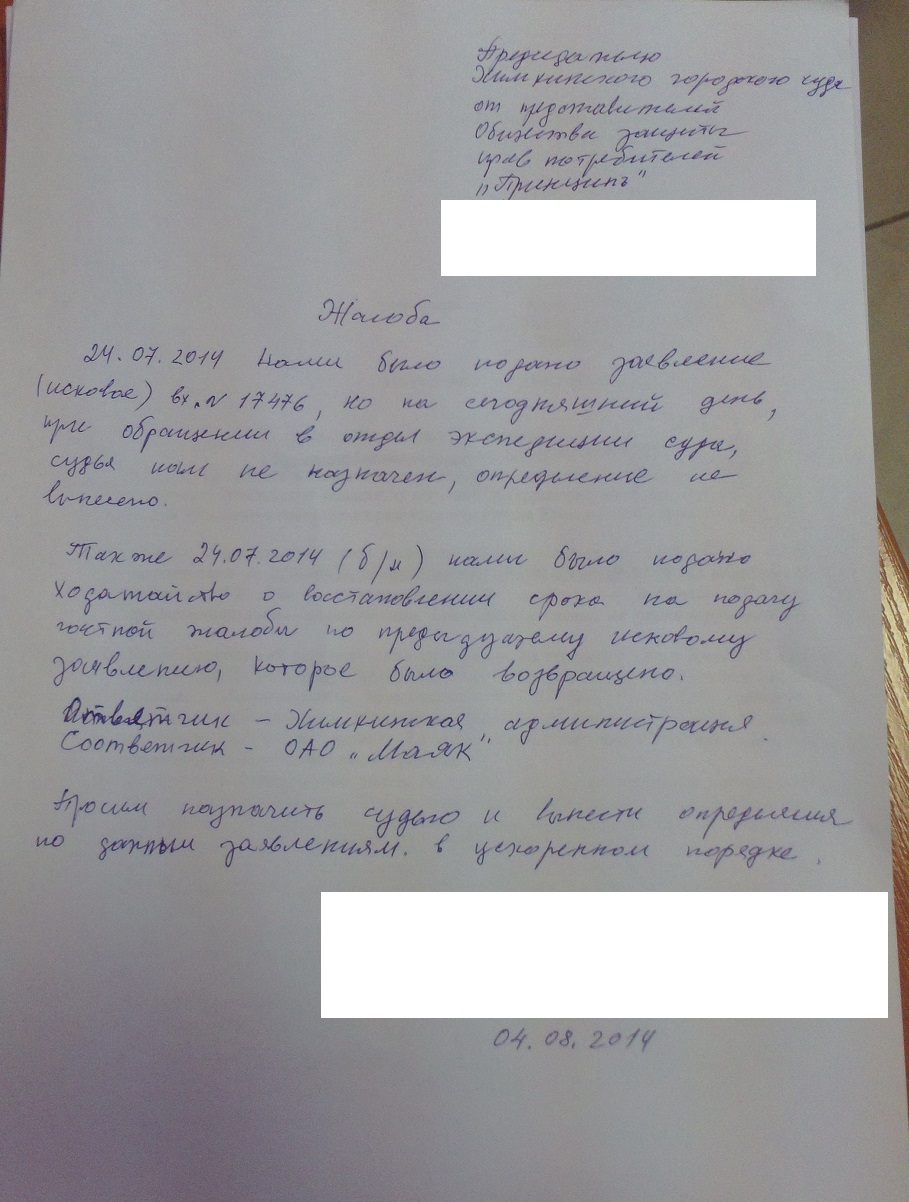 Председателю
Химкинского городского суда
от представителей
Общества защиты
прав потребителей
„Принципъ"
Жалоба
24.07.2014 нами было подано заявление
(исковое) вх. N 17476, но на сегодняшний день,
при обращении в отдел экспедиции суда,
судья нам не назначен, определение не
вынесено.
Также 24.07.2014 (б/н) нами было подано
ходатайство о восстановлении срока на подачу
частной жалобы по предыдущему исковому
заявлению, которое было возвращено.
Ответчик – Химкинская администрация.
Соответчик – ОАО „Маяк"
Просим назначить судью и вынести определения
по данным заявлениям. в ускоренном порядке.
04.08.2014